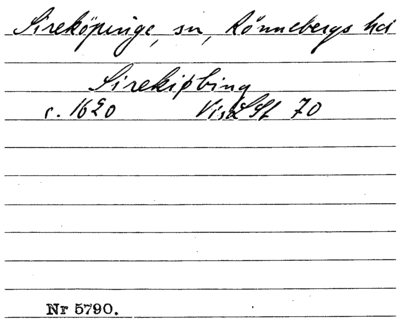 Sireköpinge, sn, Rönnebergs hd
Sirekipbing
c. 1620 St 70
Nr 5790.